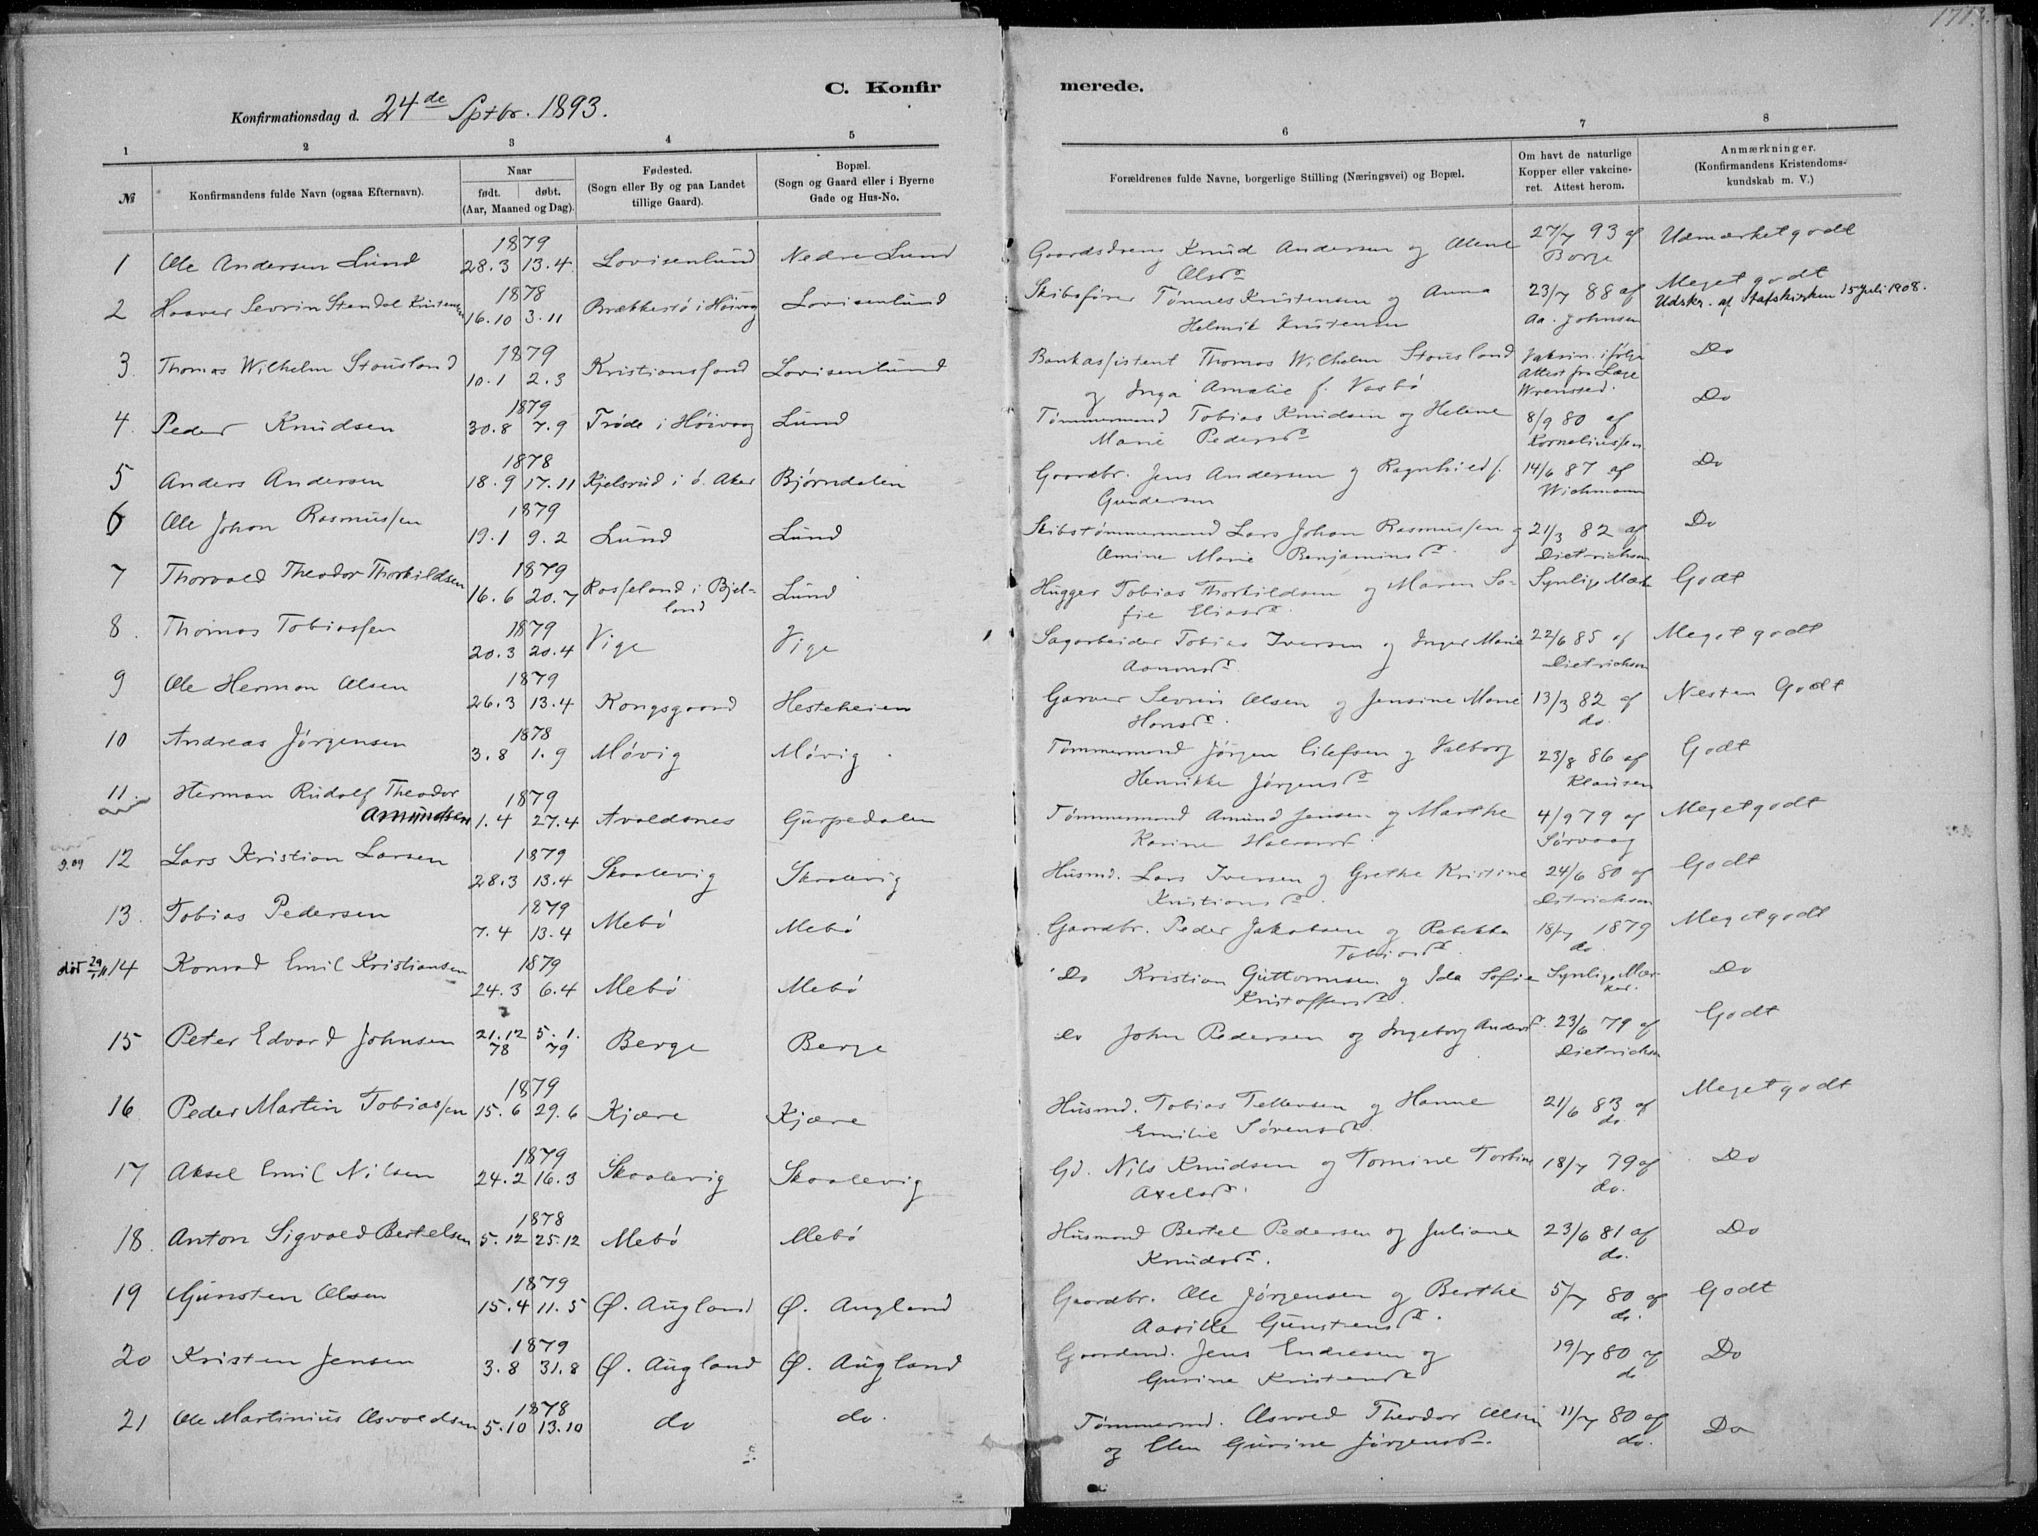 171
C. Konfirmerede.
Konfirmationsdag d. 24de Sptbr. 1893.
1 2 3 4 5 6 7 8
№
Konfirmandens fulde Navn (ogsaa Efternavn).
Naar
født. døbt.
(Aar, Maaned og Dag).
Fødested.
(Sogn eller By og paa Landet
tillige Gaard).
Bopæl.
(Sogn og Gaard eller i Byerne
Gade og Hus-No.
Forældrenes fulde Navne, borgerlige Stilling (Næringsvei) og Bopæl.
Om havt de naturlige
Kopper eller vakcine-
ret. Attest herom.
Anmærkninger.
(Konfirmandens Kristendoms-
kundskab m. V.)
1 Ole Andersen Lund 1879 28.3 13.4 Lovisenlund Nedre Lund Gaardsdreng Knud Andersen og Olene 27/7 93 af Udmærket godt
Olsd.
2 Haaver Sevrin Stendal Kristensen 1878 16.10 3.11 Brækkestø i Høivaag Lovisenlund Skibsfører Tønnes Kristensen og Anna 23/7 88 af Meget godt
Helmik Kristensen Aa. Johnsen Udskr. af Statskirken 15 Juli 1908.
3 Thomas Wilhelm Stousland 1879 10.1 2.3 Kristianssand Lovisenlund Bankassistent Thomas Wilhelm Stousland Vaksin. ifølge Do
og Inga Amalie f. Vasbø Attest fra Læge
4 Peder Knudsen 1879 30.8 7.9 Trøde i Høivaag Lund Tømmermand Tobias Knudsen og Helene 8/9 80 af Do
Marie Pedersd. Korneliussen
5 Anders Andersen 1878 18.9 17.11 Kjelsrud i Ø. Aker Bjørndalen Gaardbr. Jens Andersen og Ragnhild f. 14/6 87 af Do
Gundersen Wichmann
6 Ole Johan Rasmussen 1879 19.1 9.2 Lund Lund Skibstømmermand Lars Johan Rasmussen og 21/3 82 af Do
Amine Marie Benjaminsd. Dietrichson
7 Thorvald Theodor Thorkildsen 1879 16.6 20.7 Rosseland i Bjel- Lund Hugger Tobias Thorkildsen og Maren So- Synlige Mærker Godt
land fie Eliasd.
8 Thomas Tobiassen 1879 20.3 20.4 Vige Vige Sagarbeider Tobias Iversen og Inger Marie 22/6 85 af Meget godt
Aanensd. Dietrichson
9 Ole Herman Olsen 1879 26.3 13.4 Kongsgaard Hesteheien Garver Sevrin Olsen og Jensine Marie 13/3 82 af Nesten Godt
Hansd. do.
10 Andreas Jørgensen 1878 3.8 1.9 Møvig Møvig Tømmermand Jørgen Eilefsen og Valborg 23/8 86 af Godt
Henrikke Jørgensd. Klausen
11. Herman Rudolf Theodor 1879 1.4 27.4 Avaldsnes Gurpedalen Tømmermand Amund Jensen og Marthe 4/9 79 af Meget godt
Amundsen Karine Halvorsd. Sørvaag
12 Lars Kristian Larsen 1879 28.3 13.4 Skaalevig Skaalevig Husmd. Lars Iversen og Grethe Kristine 24/6 80 af Godt
Kristiansd. Dietrichson
13. Tobias Pedersen 1879 7.4 13.4 Mebø Mebø Gaardbr. Peder Jakobsen og Rebekka 18/7 1879 Meget godt
Tobiasd. do.
14 Konrad Emil Kristiansen 1879 24.3 6.4 Mebø Mebø Do Kristian Guttormsen og Ida Sofie Synlige Mær- Do
Kristoffersd. ker.
15 Peter Edvard Johnsen 21.12 78 5.1. 79 Berge Berge Do John Pedersen og Ingeborg Andersd. 23/6 79 af Godt
Dietrichson
16 Peder Martin Tobiassen 1879 15.6 29.6 Kjære Kjære Husmd. Tobias Tellefsen og Hanne 21/6 83 af Meget godt
Emilie Sørensd. do.
17 Aksel Emil Nilsen 1879 24.2 16.3 Skaalevig Skaalevig Gd. Nils Knudsen og Tomine Torbine 18/7 79 af Do
Axelsd. do.
18. Anton Sigvald Bertelsen 1878 5.12 25.12 Mebø Mebø Husmand Bertel Pedersen og Juliane 23/6 81 af Do
Knudsd. do.
19 Gunsten Olsen 1879 15.4 11.5 Ø. Augland Ø. Augland Gaardbr. Ole Jørgensen og Berthe 5/7 80 af Godt
Aasille Gunstensd. do.
20 Kristen Jensen 1879 3.8 31.8 Ø. Augland Ø. Augland Gaardmd. Jens Endresen og 19/7 80 af Do
Gurine Kristensd. do
21 Ole Martinius Osvaldsen 1878 5.10 13.10 do do. Tømmermd. Osvald Theodor Olsen 11/7 80 af Do
og Elen Gurine Jørgensd. do.